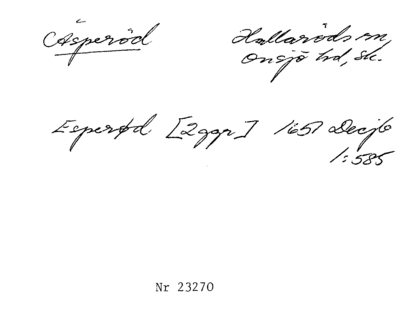 Äsperöd
Hallaröds sn,
Onsjö hd, Sk.
Esperød [2 ggr] 1651 Decjb
1:585
Nr 23270